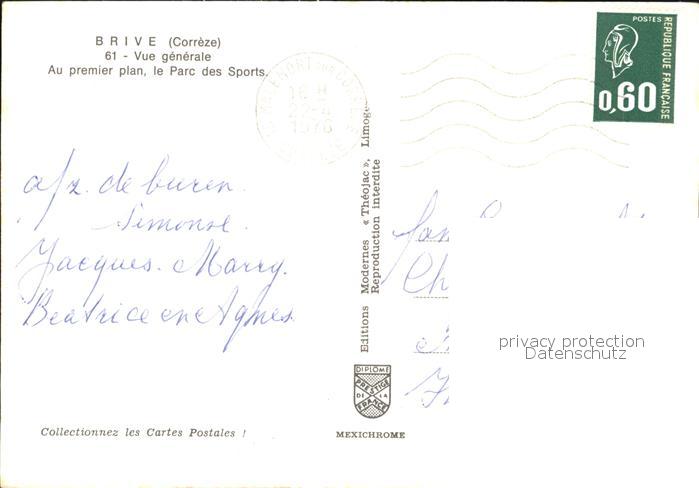 BRIVE (Corrèze)
61 - Vue générale
Au premier plan, le Parc des Sports.
POSTES
REPUBLIQUE FRANÇAISE
0,60
18 H
22-4
1976
a/z. de buren.
Simonse.
Jacques. Marry.
Beatrice en Agnes
Editions Modernes « Théojac », Limoges
Reproduction interdite
Ch
privacy protection
Datenschutz
DIPLOME
PRESTIGE
DE LA
FRANCE
Collectionnez les Cartes Postales !
MEXICHROME